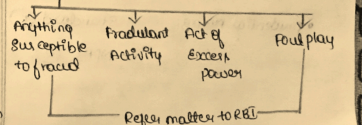 Anything
Susceptible
to fraud
Fradulant
Activity
Act of
Excess
power
Foul play
Refer matter to RBI